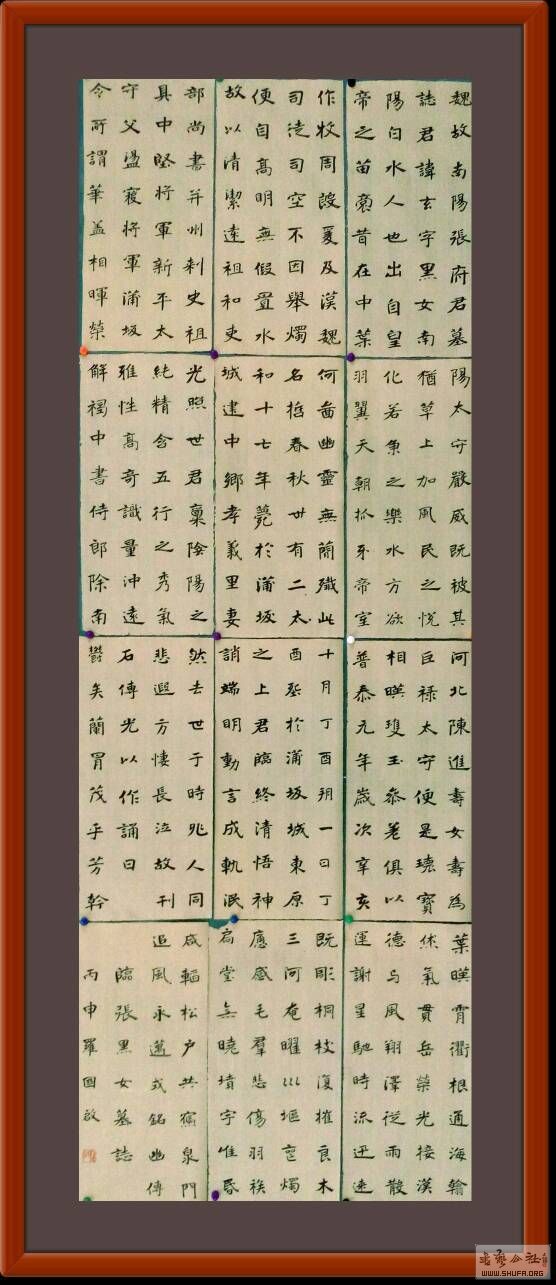 魏故南陽張府君墓
誌君諱玄字黑女南
陽白水人也出自皇
帝之苗裔昔在中葉
作牧周殷爰及漢魏
司徒司空不因舉燭
便自高明無假置水
故以清潔遠祖和吏
部尚書并州刺史祖
具中堅將軍新平太
守父盪寇將軍蒲坂
令所謂華蓋相暉榮
光照世君稟陰陽之
純精含五行之秀氣
雅性高奇識量沖遠
解褐中書侍郎除南
陽太守嚴威既被其
猶草上加風民之悅
化若魚之樂水方欲
羽翼天朝抓牙帝室
何啚幽靈無簡殲此
名哲春秋卅有二太
和十七年薨於蒲坂
城建中鄉孝義里妻
河北陳進壽女壽為
巨祿太守便是瓌寶
相暎瓊玉參差俱以
普泰元年歲次辛亥
十月丁酉朔一日丁
酉葬於蒲坂城東原
之上君臨終清悟神
誚端明動言成軌泯
然去世于時兆人同
悲遐方悽長泣故刊
石傳光以作誦曰
鬱矣蘭胄茂乎芳幹
葉暎霄衢根通海翰
休氣貫岳榮光接漢
德与風翔澤從雨散
運謝星馳時流迅速
既彫桐枝復摧良木
三河奄曜川堰巨燭
應感毛羣悲傷羽族
扃堂無曉墳宇唯昏
咸輀松戶共寢泉門
追風永邁式銘幽傳
臨張黑女墓誌
丙申羅國啟
書藝公社
WWW.SHUFA.ORG